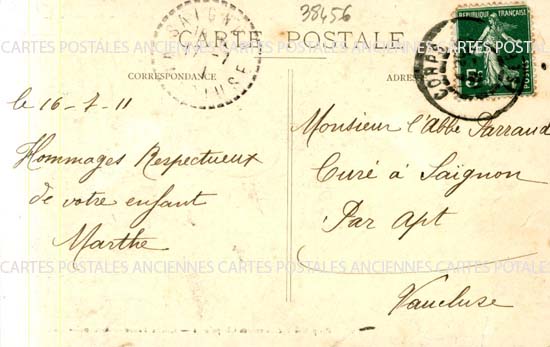 38456
SAIGN
CARTE POSTALE
REPUBLIQUE FRANÇAISE
POSTES
5
CORPS
CARTES POSTALES ANCIENNES CARTES POSTALES ANCIENNES CARTES POSTALES ANCIENNES CARTES POSTALES
CORRESPONDANCE
ADRES
le 16-7-11
Hommages Respectueux
de votre enfant
Marthe
Monsieur l'Abbé Parraud
Curé à Saignon
Par Apt
Vaucluse
CARTES POSTALES ANCIENNES CARTES POSTALES ANCIENNES CARTES POSTALES ANCIENNES CARTES POSTALES